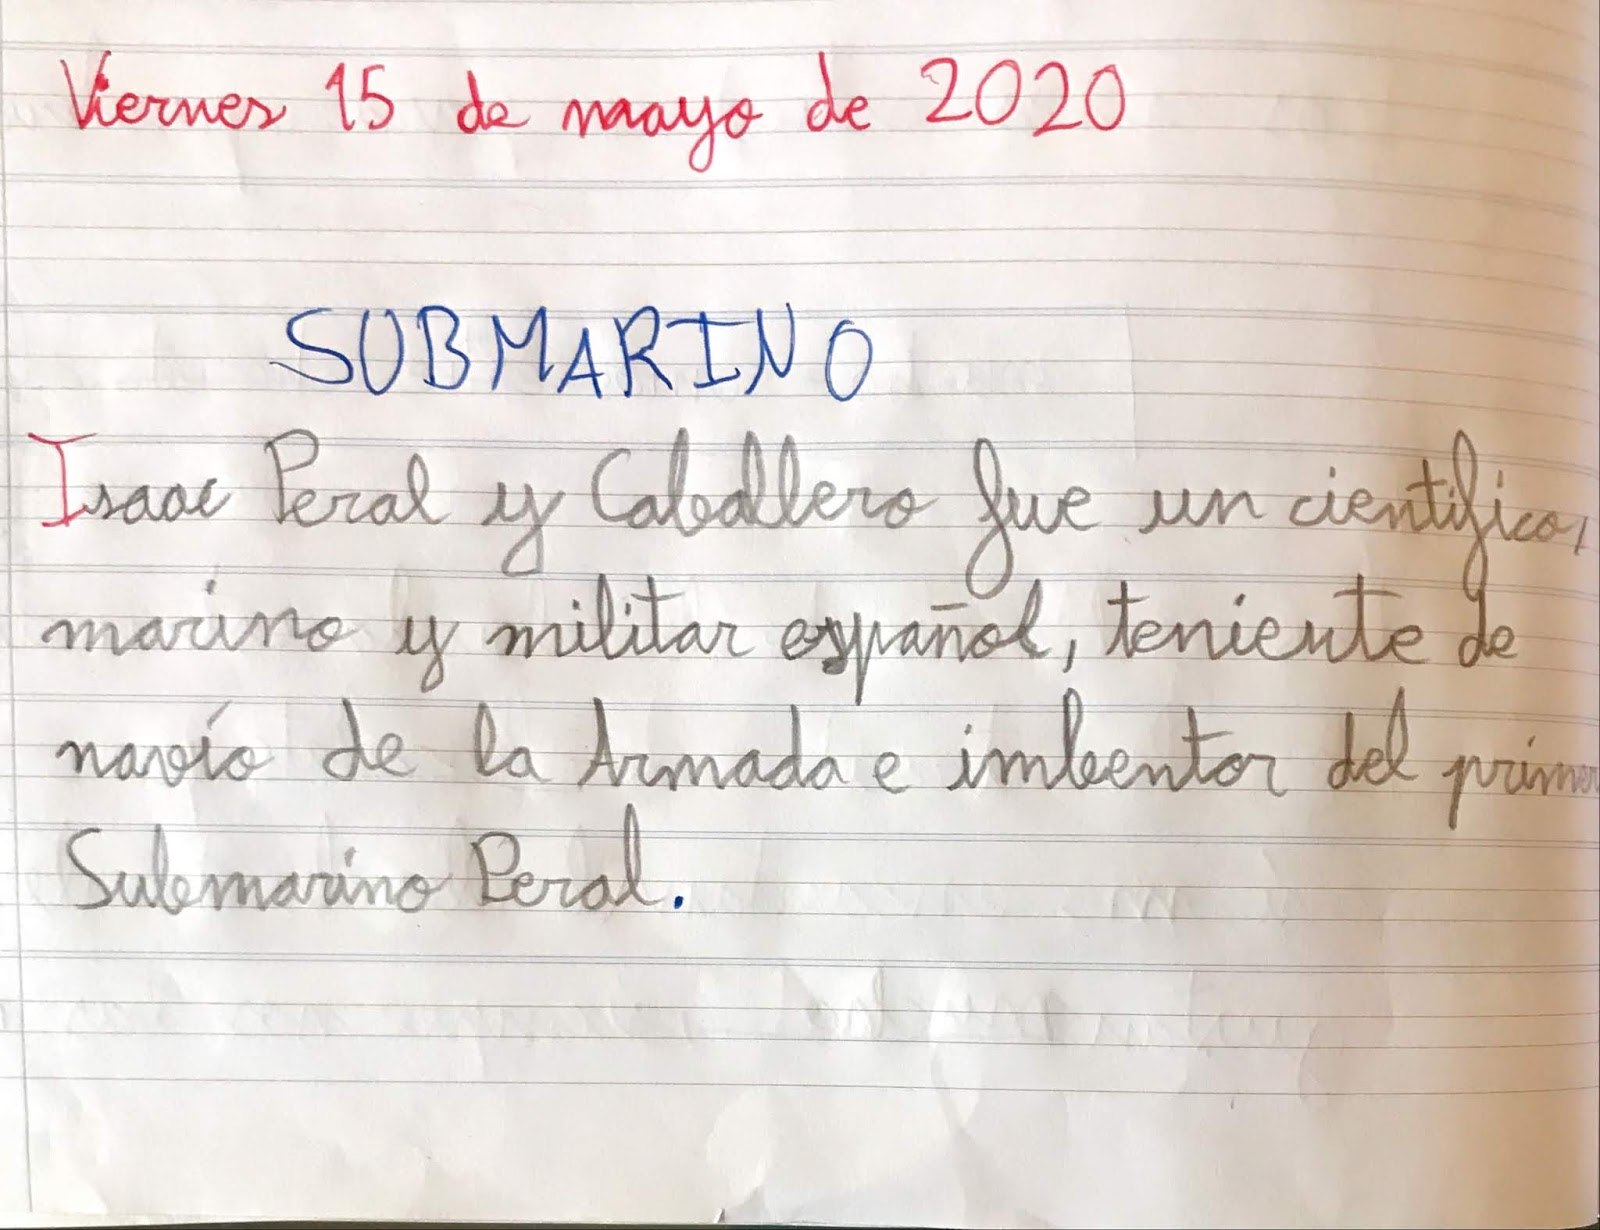 Viernes 15 de mayo de 2020
SUBMARINO
Isaac Peral y Caballero fue un cientifico,
marino y militar español, teniente de
navío de la Armada e imbentor del primer
Submarino Peral.